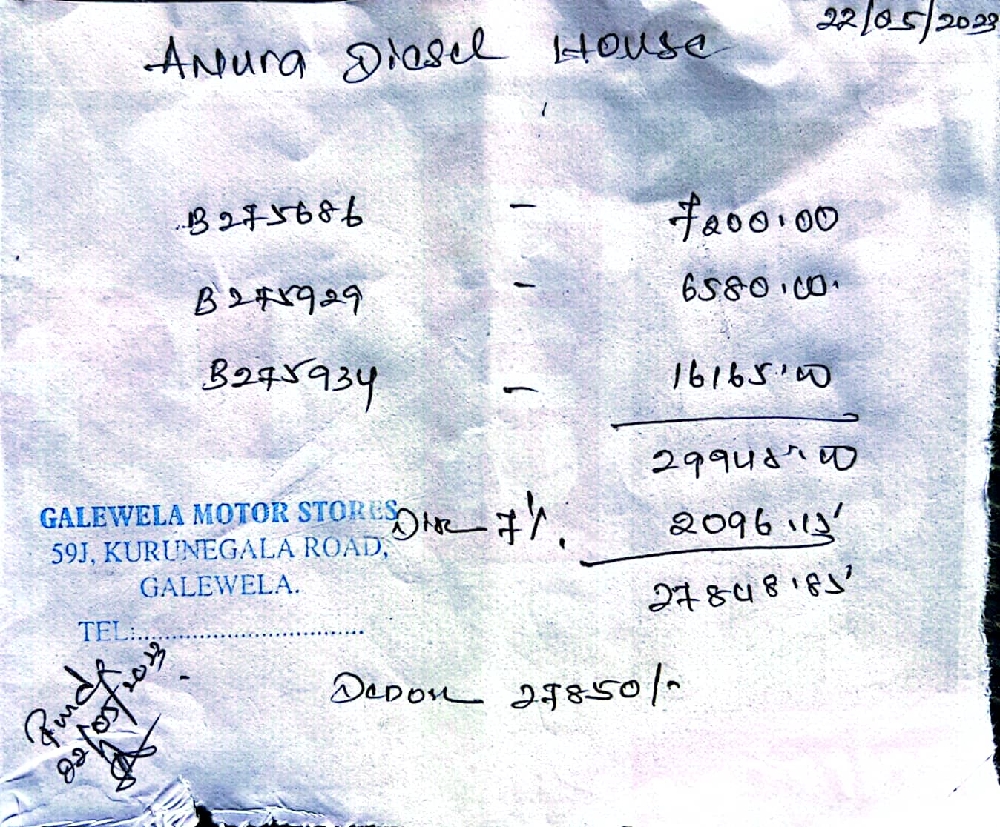 22/05/2023
Anura Diesel House
B275686 - 7200.00
B275929 - 6580.00
B275934 - 16165.00
29945.00
Dis 7%. 2096.15
27848.85
GALEWELA MOTOR STORES
59J, KURUNEGALA ROAD,
GALEWELA.
TEL:................................
27850/-
22/05/2023